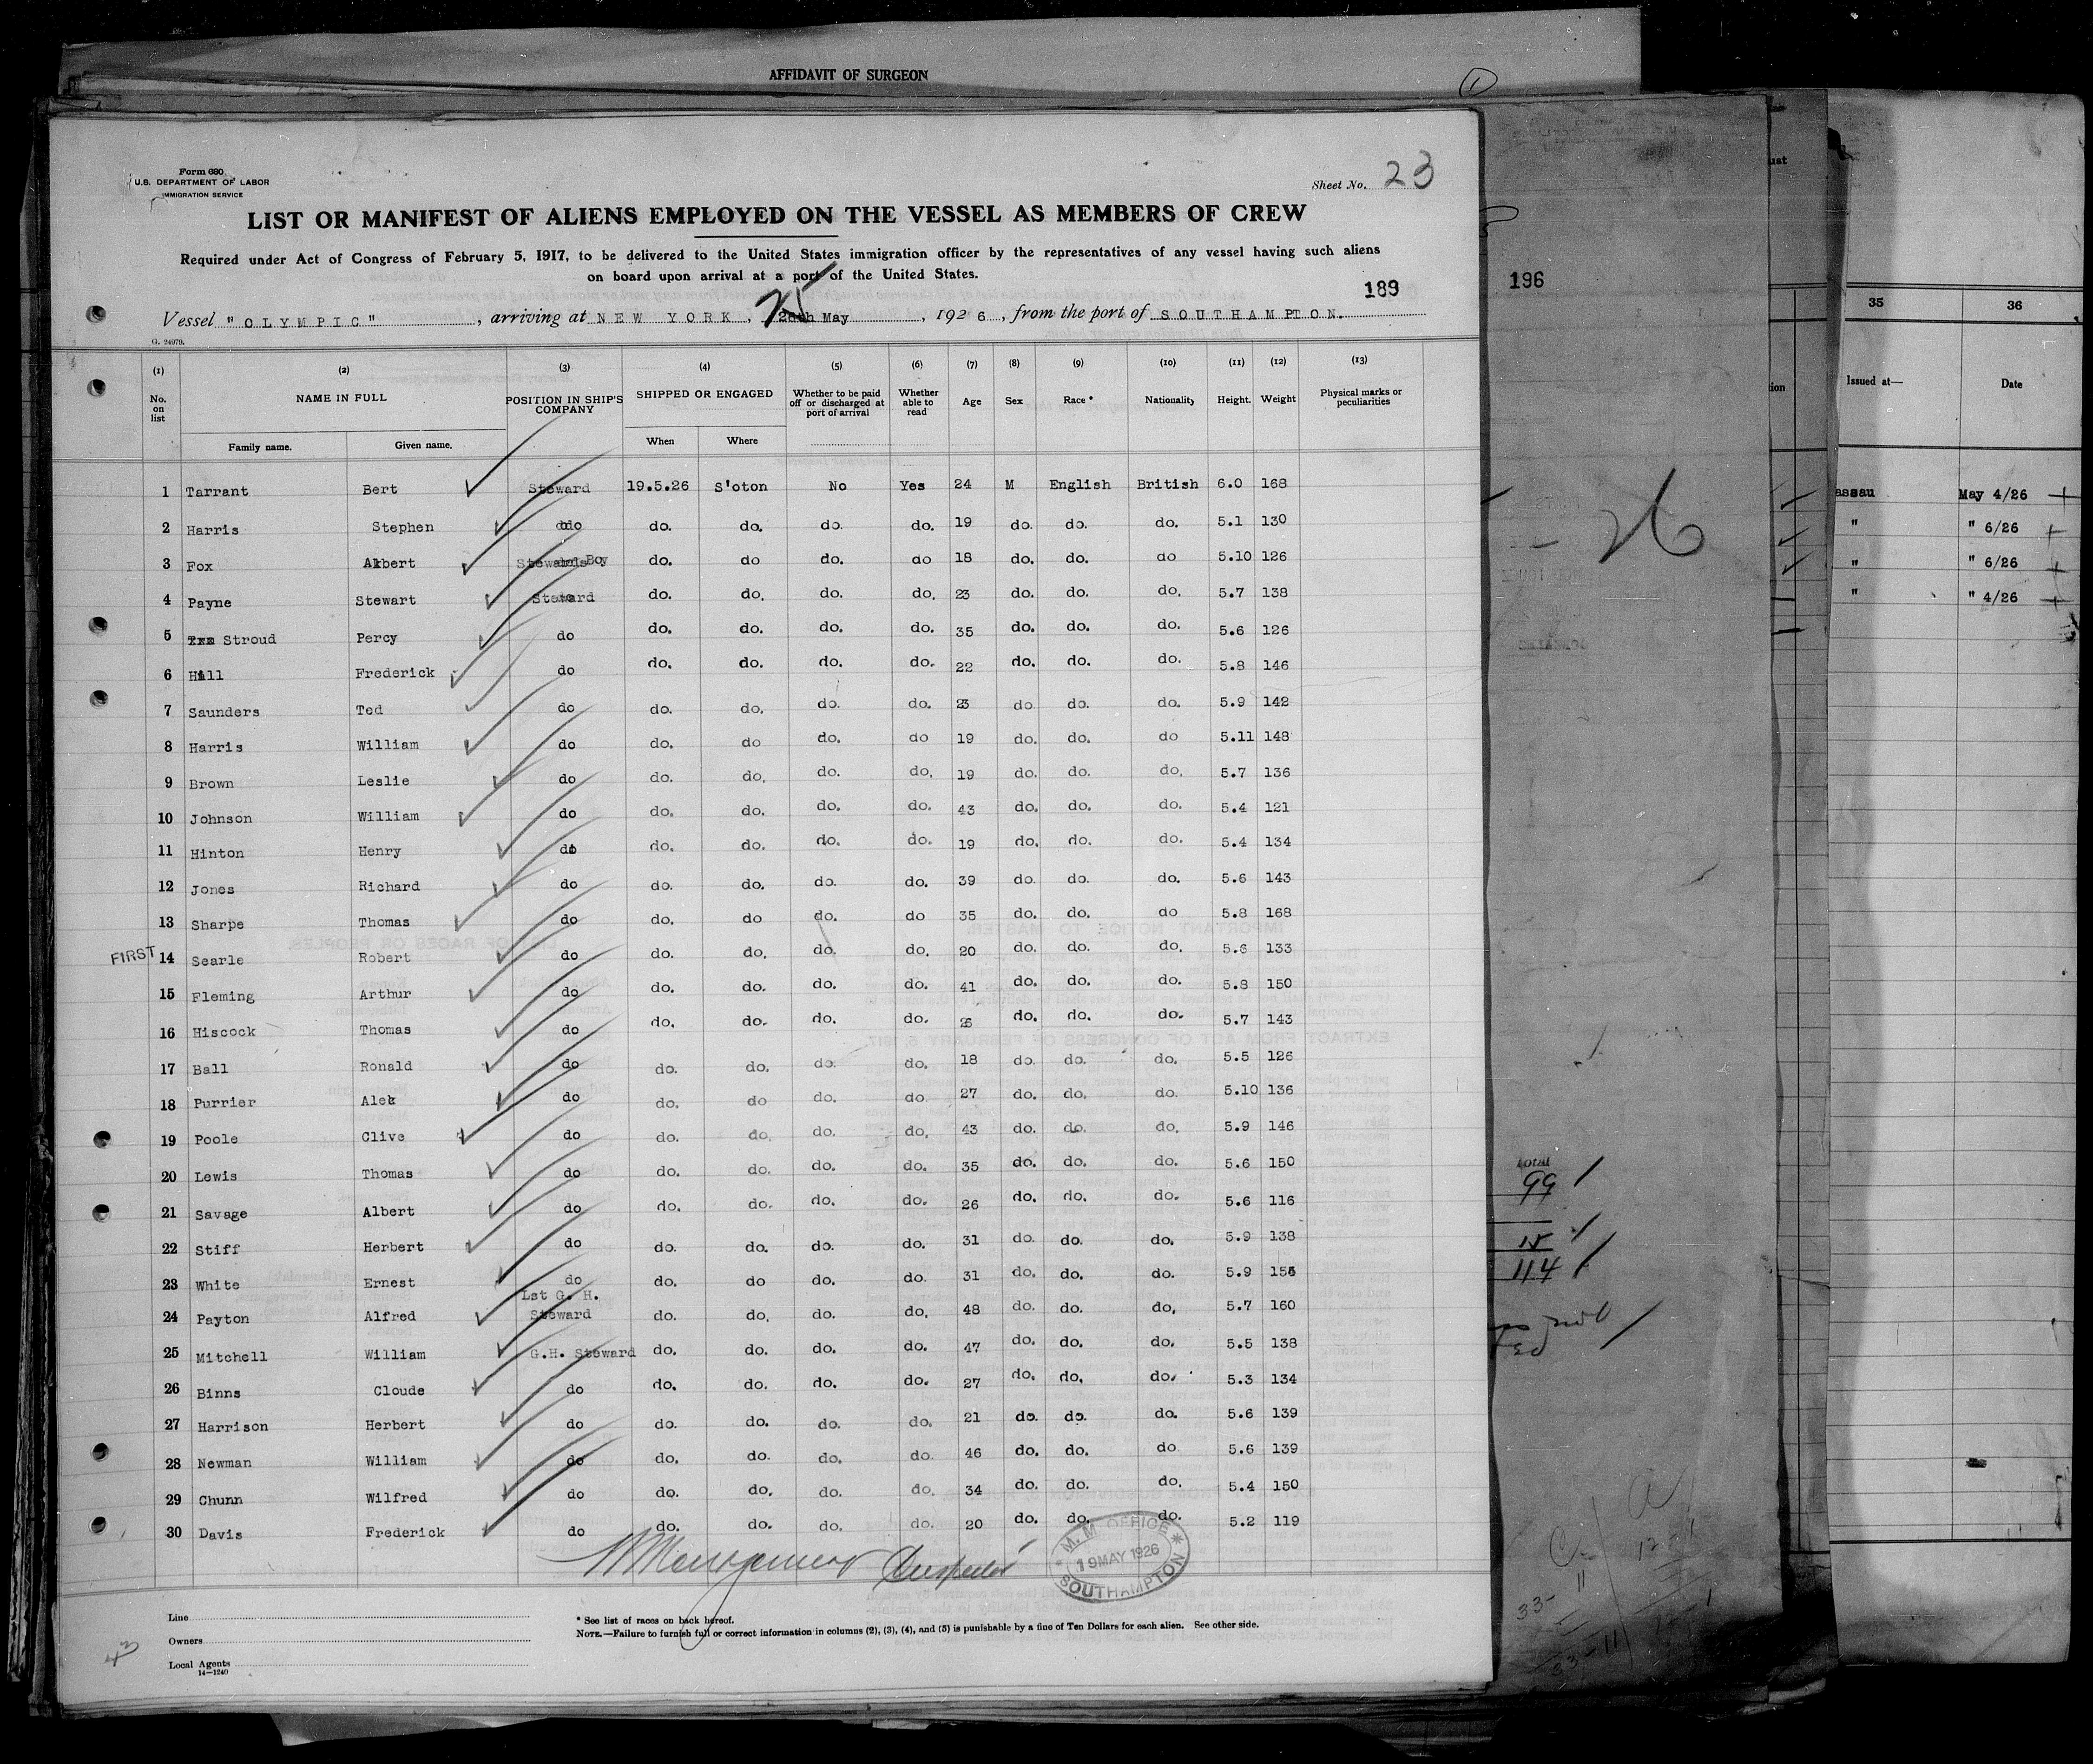 AFFIDAVIT OF SURGEON
1
Form 680
U.S. DEPARTMENT OF LABOR
IMMIGRATION SERVICE
Sheet No. 23
LIST OR MANIFEST OF ALIENS EMPLOYED ON THE VESSEL AS MEMBERS OF CREW
Required under Act of Congress of February 5, 1917, to be delivered to the United States immigration officer by the representatives of any vessel having such aliens
on board upon arrival at a port of the United States.
189
Vessel "OLYMPIC", arriving at NEW YORK, 25 May, 1926, from the port of SOUTHAMPTON.
G. 24979.
(1) (2) (3) (4) (5) (6) (7) (8) (9) (10) (11) (12) (13)
No. on list NAME IN FULL POSITION IN SHIP'S COMPANY SHIPPED OR ENGAGED Whether to be paid off or discharged at port of arrival Whether able to read Age Sex Race * Nationality Height. Weight Physical marks or peculiarities
Family name. Given name. When Where
1 Tarrant Bert Steward 19.5.26 S'oton No Yes 24 M English British 6.0 168
2 Harris Stephen do do. do. do. do. 19 do. do. do. 5.1 130
3 Fox Albert Stewards Boy do. do do. do 18 do. do. do 5.10 126
4 Payne Stewart Steward do. do. do. do. 23 do. do. do. 5.7 138
5 Stroud Percy do do. do. do. do. 35 do. do. do. 5.6 126
6 Hill Frederick do do. do. do. do. 22 do. do. do. 5.8 146
7 Saunders Ted do do. do. do. do. 23 do do. do. 5.9 142
8 Harris William do do. do do. do 19 do. do. do 5.11 148
9 Brown Leslie do do. do. do. do. 19 do. do. do. 5.7 136
10 Johnson William do do. do. do. do. 43 do. do. do. 5.4 121
11 Hinton Henry do do. do. do. do. 19 do. do. do. 5.4 134
12 Jones Richard do do. do. do. do. 39 do. do. do. 5.6 143
13 Sharpe Thomas do do. do do. do 35 do. do. do 5.8 168
FIRST 14 Searle Robert do do. do. do. do. 20 do. do. do. 5.6 133
15 Fleming Arthur do do. do. do. do. 41 do. do. do. 5.8 150
16 Hiscock Thomas do do. do. do. do. do. do. do. 5.7 143
17 Ball Ronald do do. do. do. do. 18 do. do. do. 5.5 126
18 Purrier Alek do do. do do. do 27 do. do. do. 5.10 136
19 Poole Clive do do. do. do. do. 43 do. do. do. 5.9 146
20 Lewis Thomas do do. do. do. do. 35 do. do. do. 5.6 150
21 Savage Albert do do. do. do. do. 26 do. do. do. 5.6 116
22 Stiff Herbert do do. do. do. do. 31 do. do. do. 5.9 138
23 White Ernest do do. do do. do. 31 do. do. do. 5.9
24 Payton Alfred Lst G. H. Steward do. do. do. do. 48 do. do. do. 5.7 160
25 Mitchell William G.H. Steward do. do. do. do. 47 do. do. do. 5.5 138
26 Binns Cloude do do. do. do. do. 27 do. do. do. 5.3 134
27 Harrison Herbert do do. do. do. do. 21 do. do. do. 5.6 139
28 Newman William do do. do. do. do. 46 do. do. do 5.6 139
29 Chunn Wilfred do do. do. do. do. 34 do. do. do. 5.4 150
30 Davis Frederick do do. do. do. do. 20 do. do. do. 5.2 119
M.M. OFFICE
19 MAY 1926
SOUTHAMPTON
Line
Owners
Local Agents
14—1240
* See list of races on back hereof.
NOTE.—Failure to furnish full or correct information in columns (2), (3), (4), and (5) is punishable by a fine of Ten Dollars for each alien. See other side.
196
26
total
99
15
114
35 36
Issued at— Date
assau May 4/26
" " 6/26
" " 6/26
" " 4/26